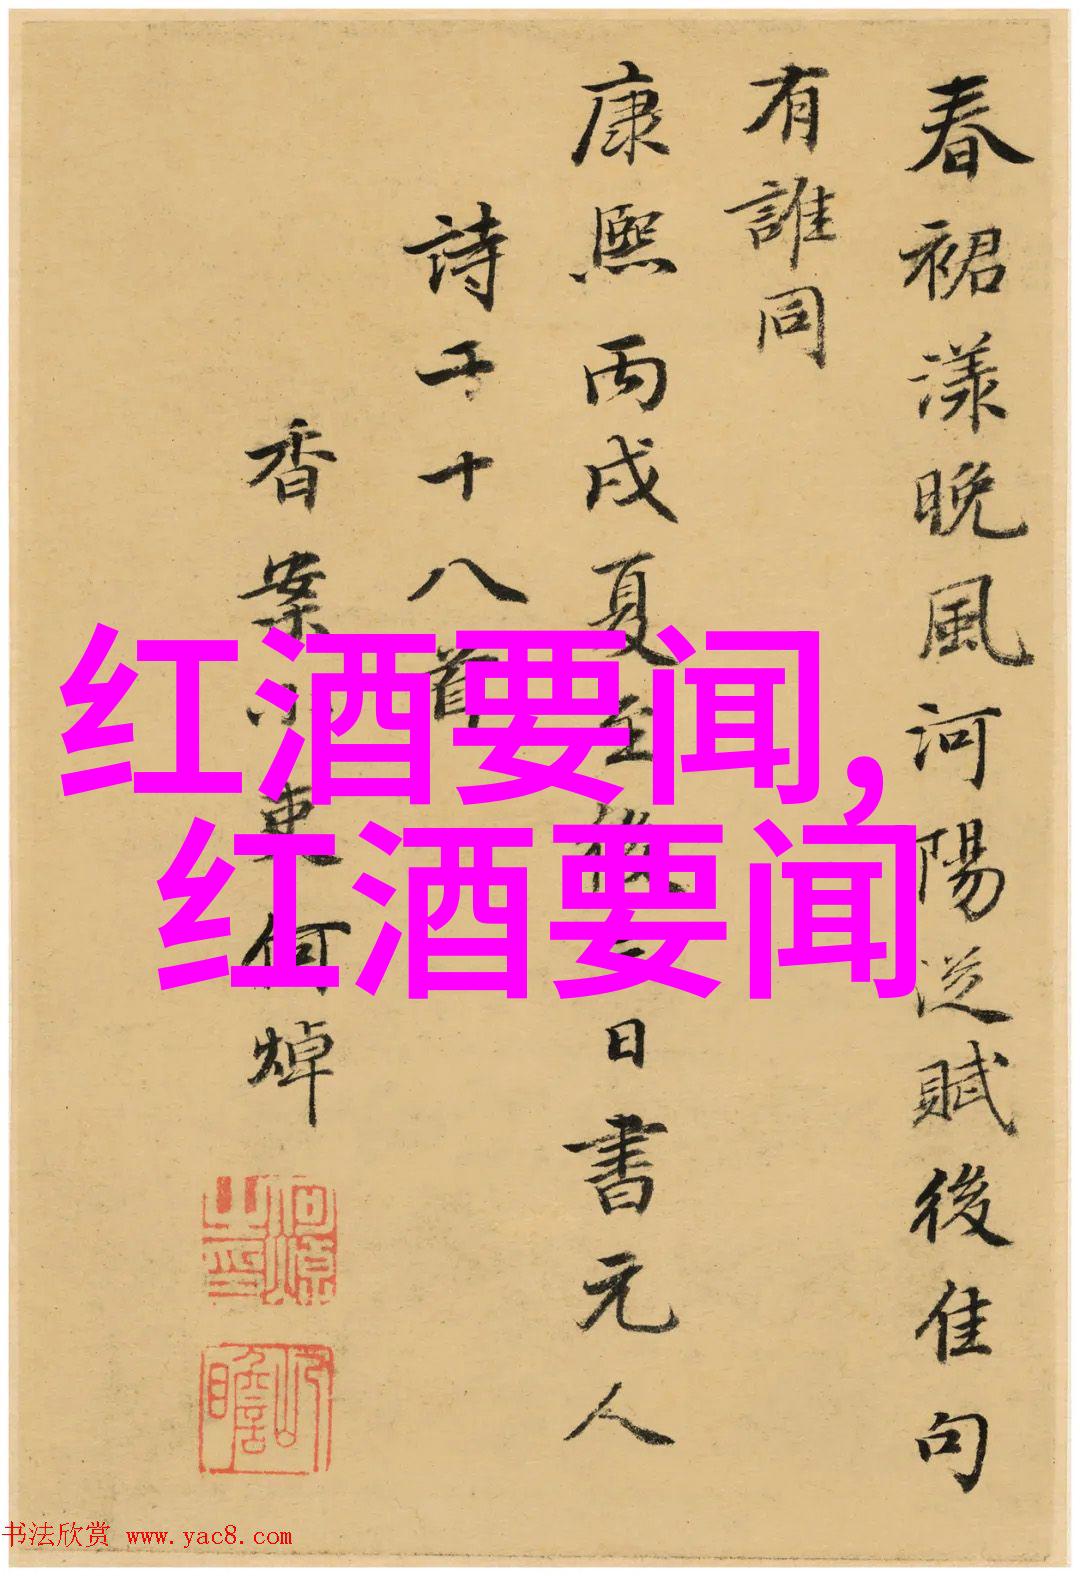 春裙漾晚風河陽從賦後佳句
有誰同
康熙丙戌夏至後二日書元人
詩五十八首
香案小吏何焯
红酒要闻,
红酒要闻
书法欣赏 www.yac8.com